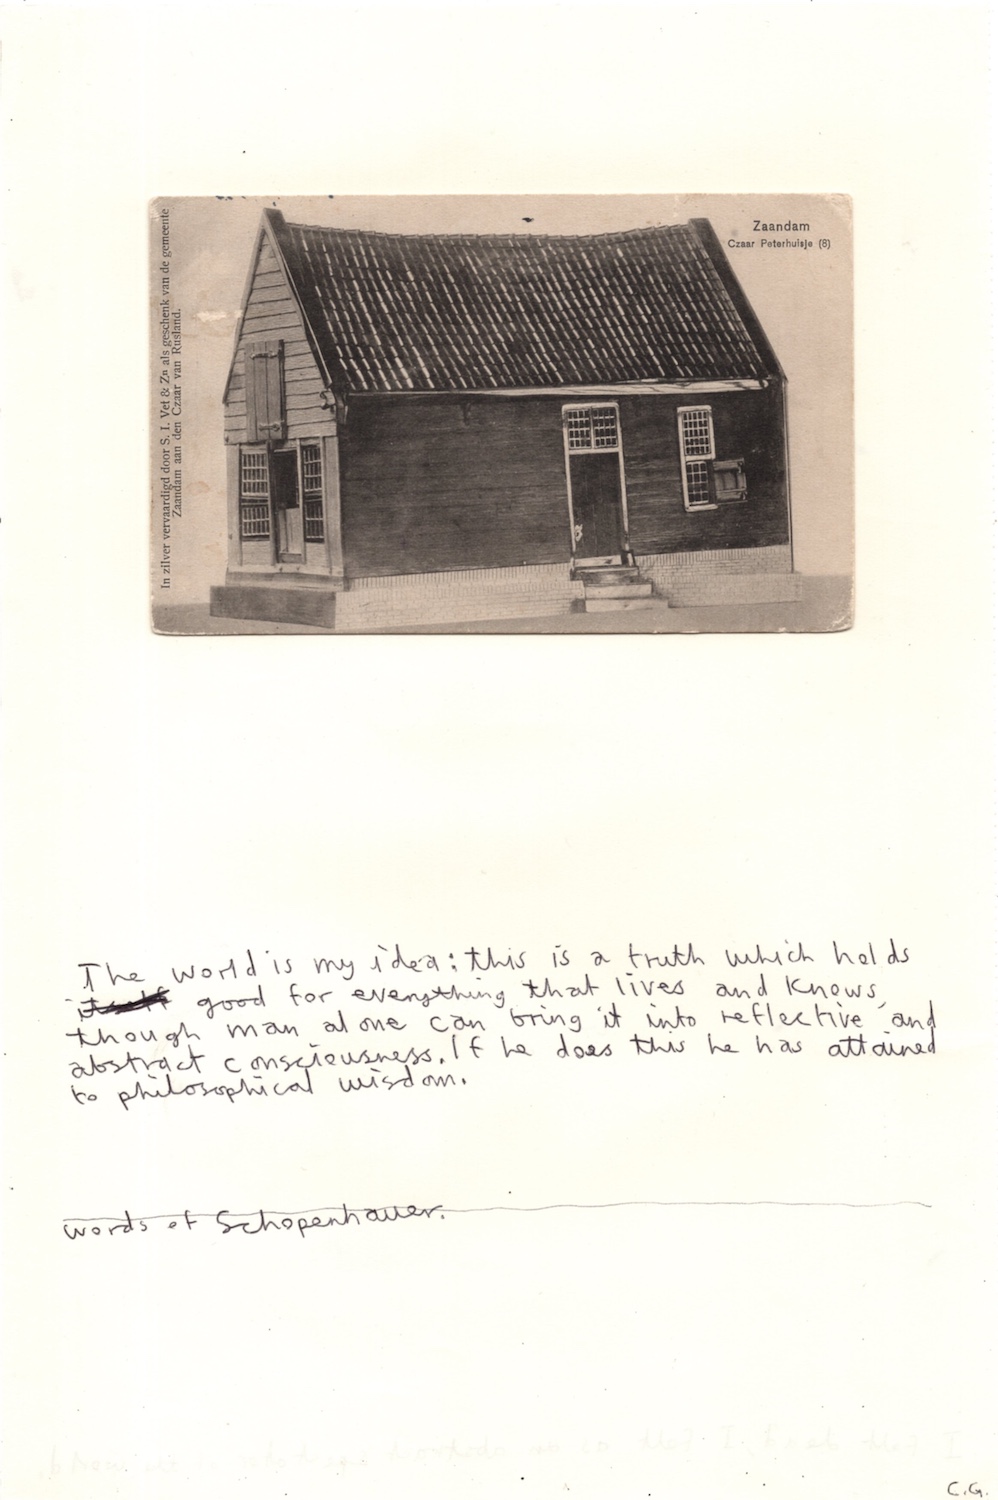 Zaandam
Czaar Peterhuisje (8)
In zilver vervaardigd door S. I. Vet & Zn als geschenk van de gemeente
Zaandam aan den Czaar van Rusland.
The world is my idea: this is a truth which holds
itself good for everything that lives and knows,
though man alone can bring it into reflective and
abstract consciousness. If he does this he has attained
to philosophical wisdom.
words of Schopenhauer.
C.G.